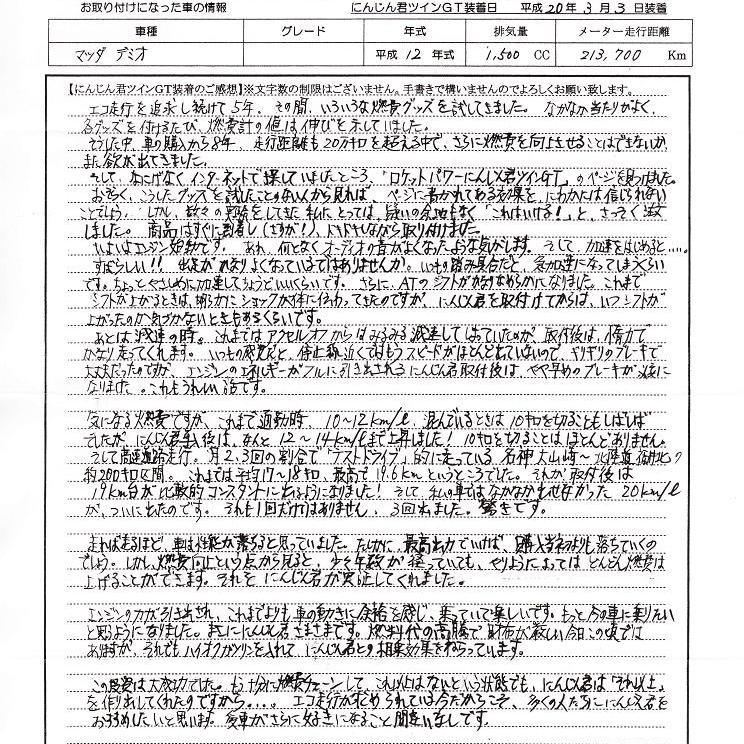 お取り付けになった車の情報 にんじん君ツインGT装着日 平成20年3月3日装着
車種 グレード 年式 排気量 メーター走行距離
マツダ デミオ 平成12年式 1,500 CC 213,700 Km
【にんじん君ツインGT装着のご感想】※文字数の制限はございません。手書きで構いませんのでよろしくお願い致します。
エコ走行を追求し続けて5年、その間、いろいろな燃費グッズを試してきました。なかなか当たりがよく、
各グッズを付けるたび、燃費計の値は伸びを示していました。
そうした中、車の購入から8年、走行距離も20万キロを超える中で、さらに燃費を向上させることはできないか、
また欲が出てきました。
そして、なにげなくインターネットで探していましたところ、「ロケットパワーにんじん君ツインGT」のページを見つけました。
おそらく、こうしたグッズを試したことのない人から見れば、ページに書かれてある効果を、にわかには信じられない
ことでしょう。しかし、数々の経験をしてきた私にとっては、疑いの余地もなく「これはいける!」と、さっそく注文
しました。商品はすぐに到着し(さすが!)、ドキドキしながら取り付けました。
いよいよエンジン始動です。あれ、何となくオーディオの音がよくなったような気がします。そして、加速をはじめると.....
すばらしい!!出足がかなりよくなっているではありませんか。いつもの踏み具合だと、急加速になってしまうくらい
です。ちょっとやさしめに加速してちょうどいいくらいです。さらに、ATのシフトがかなりなめらかになりました。これまで
シフトが上がるときは、明らかにショックが体に伝わってきたのですが、にんじん君を取付けてからは、いつシフトが
上がったのか気づかないときもあるくらいです。
あとは減速の時。これまではアクセルオフからはみるみる減速してしまっていたのが、取付後は、惰力で
かなり走ってくれます。いつもの感覚だと、停止線近くではもうスピードがほとんど出ていないので、ギリギリのブレーキで
大丈夫だったのですが、エンジンのエネルギーがフルに引き出されるにんじん君取付後は、やや早めのブレーキが必要に
なりました。これもうれしい話です。
気になる燃費ですが、これまで通勤時、10~12km/ℓ、混んでいるときは10キロを切ることもしばしば
でしたが、にんじん君導入後は、なんと12~14km/ℓまで上昇しました!10キロを切ることはほとんどありません。
そして高速道路走行。月2.3回の割合で「テストドライブ」的に走っている名神大山崎~北陸道
約200キロ区間。これまでは平均17~18キロ、最高で19.6kmというところでした。それが取付後は
19km台が比較的コンスタントに出るようになりました!そして、私の車ではなかなか出せなかった20km/ℓ
が、ついに出たのです。それも1回だけではありません、3回出ました。驚きです。
走れば走るほど、車は性能が落ちると思っていました。たしかに、最高出力でいけば、購入当初よりも落ちていくの
でしょう。しかし、燃費向上という点から見ると、少々年数が経っていても、やりようによってはどんどん燃費は
上げることができます。それをにんじん君が実証してくれました。
エンジンの力が引き出され、これまでよりも車の動きに余裕を感じ、乗っていて楽しいです。もっとこの車に乗りたい
と思うようになりました。まさににんじん君さまさまです。燃料代の高騰で財布が厳しい今日この頃では
ありますが、それでもハイオクガソリンを入れて、にんじん君との相乗効果をねらっています。
この投資は大成功でした。もう十分に燃費チューンして、これ以上はないという状態でも、にんじん君は「それ以上」
を作り出してくれたのですから....。エコ走行が求められている今だからこそ、多くの人たちににんじん君を
おすすめしたいと思います。愛車がさらに好きになること間違いなしです。